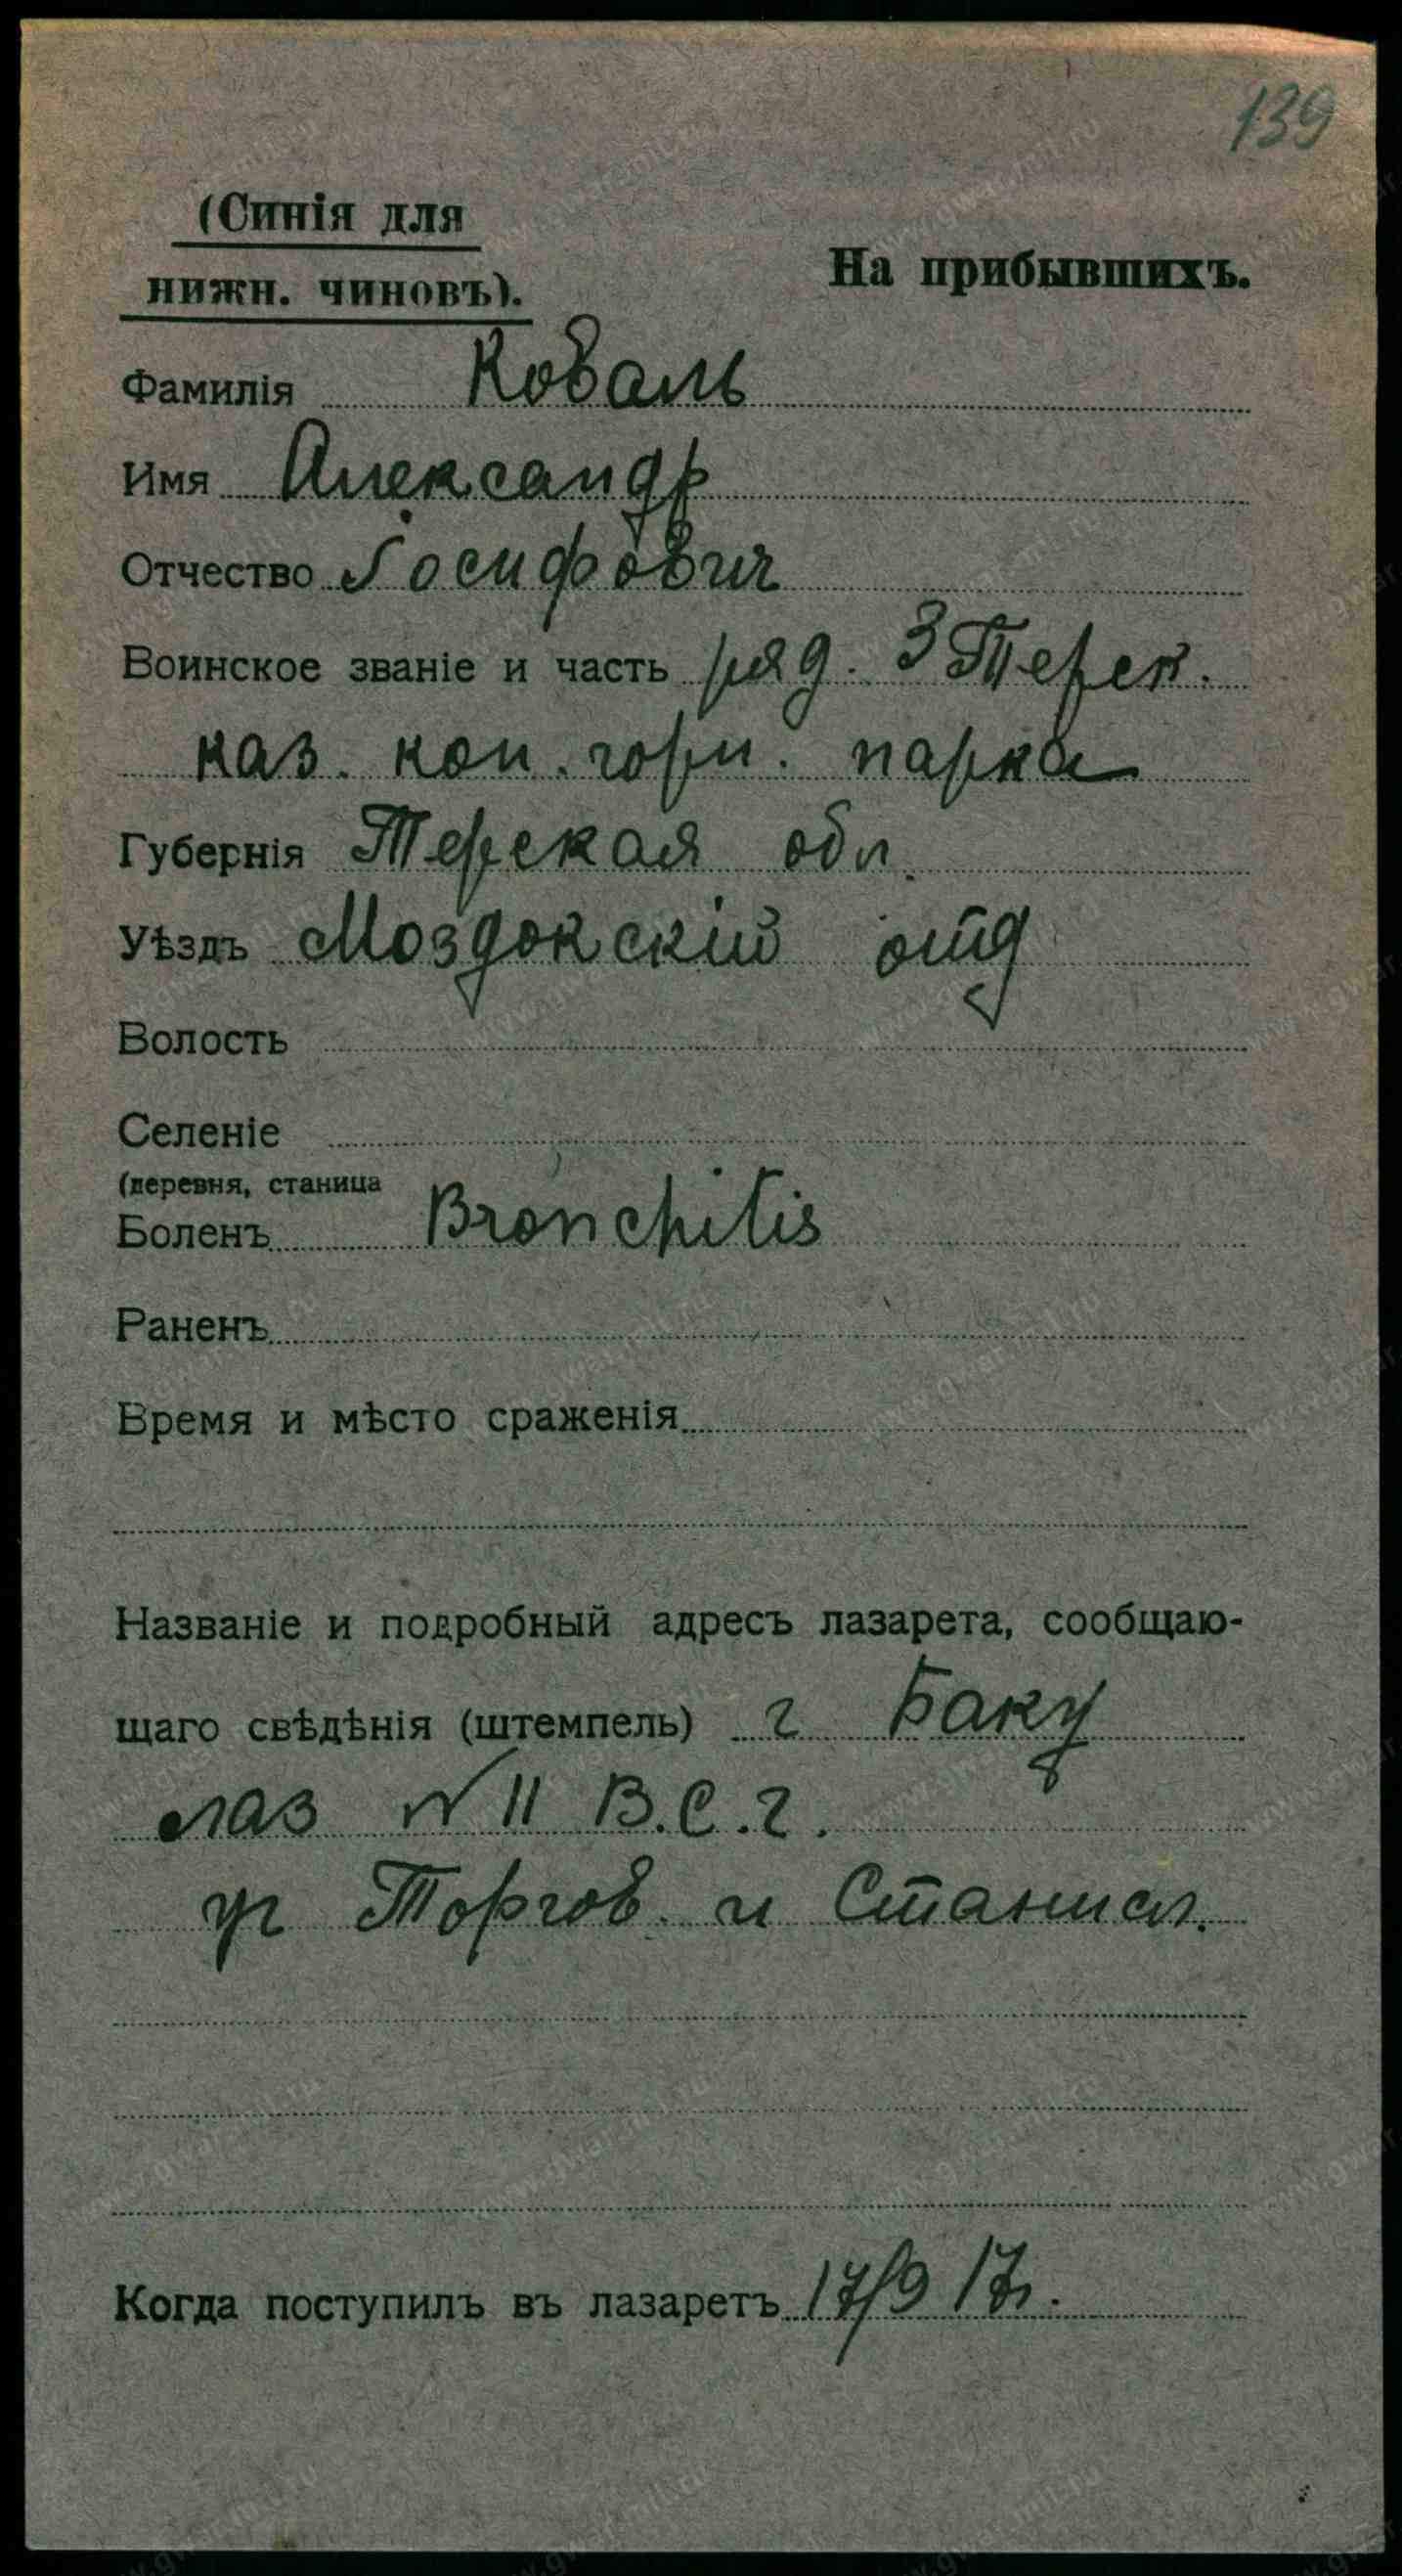 139
(Синія для
нижн. чиновъ).
На прибывшихъ.
Фамилія Коваль
Имя Александр
Отчество Іосифович
Воинское званіе и часть ряд. 3 Терск.
каз. кон. горн. парка
Губернія Терская обл.
Уѣздъ Моздокскій отд
Волость
Селеніе
(деревня, станица
Боленъ Bronchitis
Раненъ
Время и мѣсто сраженія
Названіе и подробный адресъ лазарета, сообщаю-
щаго свѣдѣнія (штемпель) г Баку
лаз № 11 В.С.г.
уг Торгов. и Станисл.
Когда поступилъ въ лазаретъ 17/9 17г.